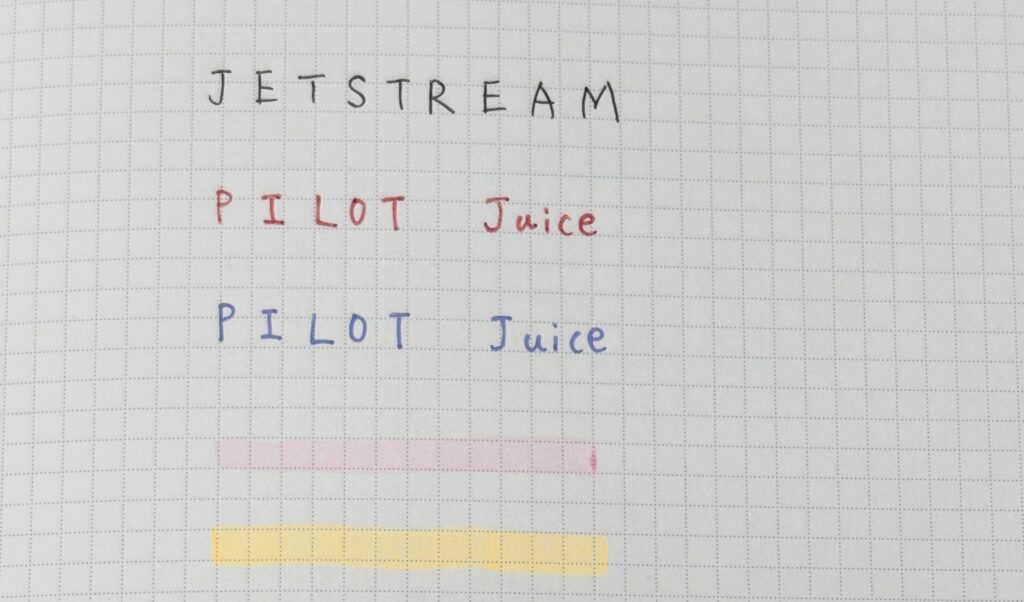 JETSTREAM
PILOT Juice
PILOT Juice